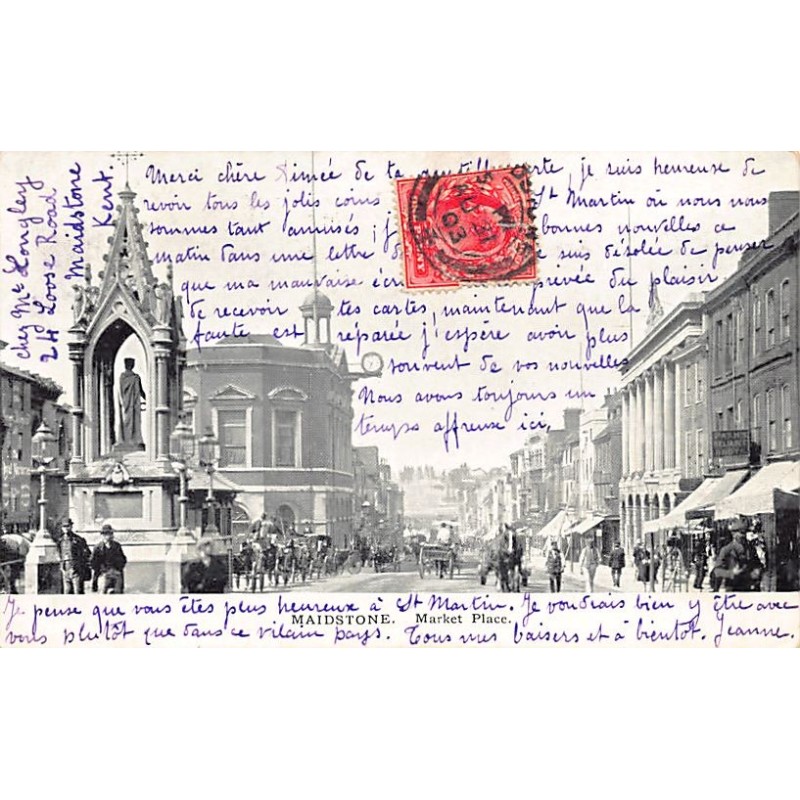 chez Mr Longley
24 Loose Road
Maidstone
Kent.
Merci chère Aimée de ta gentille carte, je suis heureuse de
revoir tous les jolis coins St Martin où nous nous
sommes tant amusés, bonnes nouvelles ce
matin dans une lettre de suis désolée de penser
que ma mauvaise privée du plaisir
de recevoir tes cartes, maintenant que la
faute est réparée j'espère avoir plus
souvent de vos nouvelles
Nous avons toujours un
temps affreux ici,
Je pense que vous êtes plus heureux à St Martin. Je voudrais bien y être avec
vous plutôt que dans ce vilain pays. Tous mes baisers et à bientôt. Jeanne.
MAIDSTONE. Market Place.
03